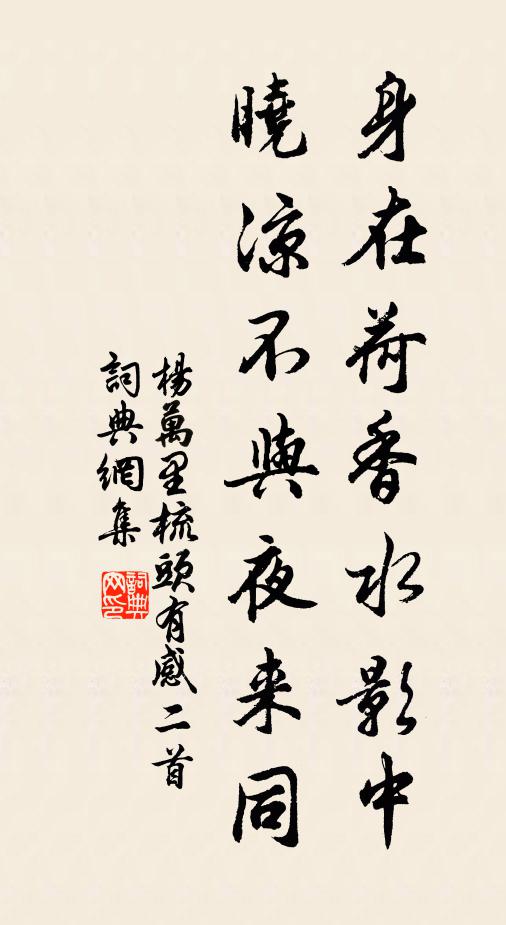 身在荷香水影中
曉涼不與夜来同
楊萬里梳頭有感二首
詞典網集
詞典网印